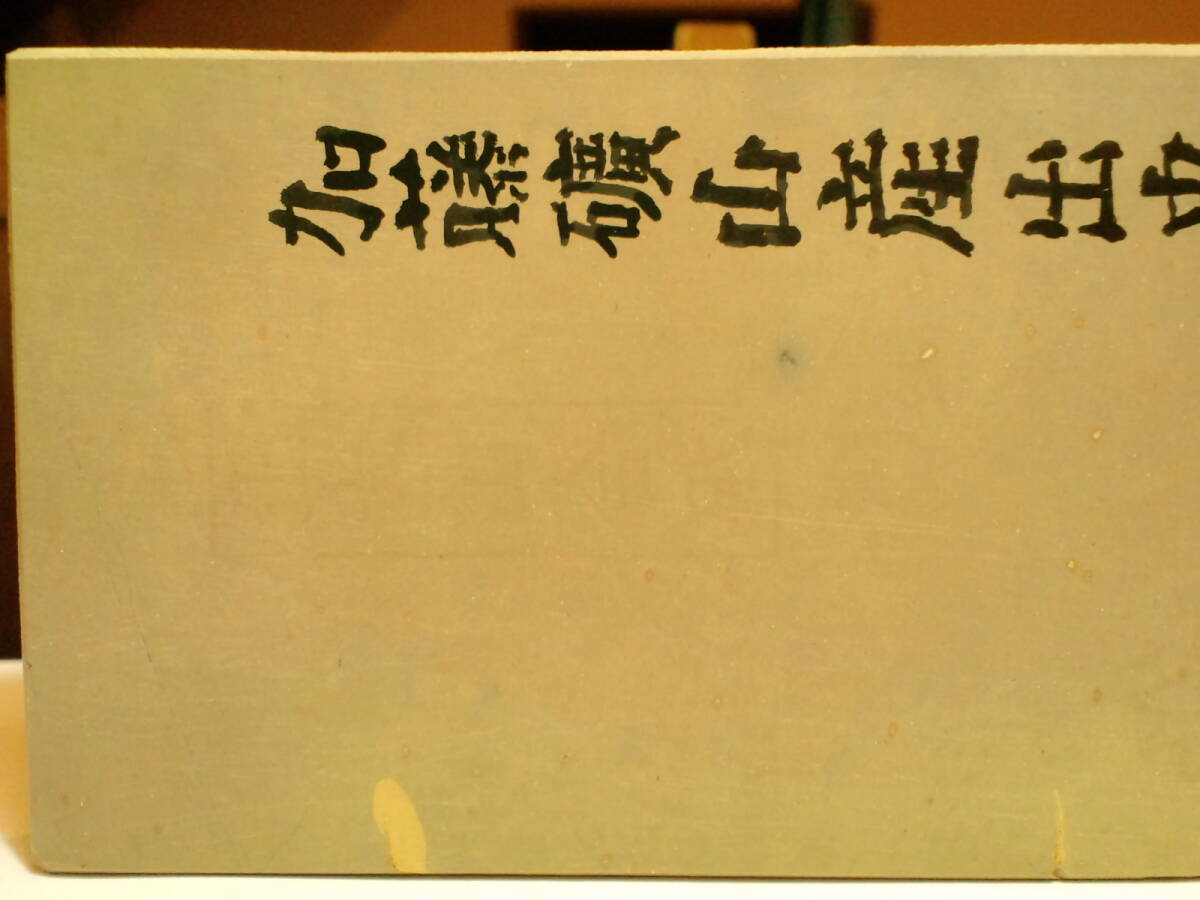 加藤礦山産出